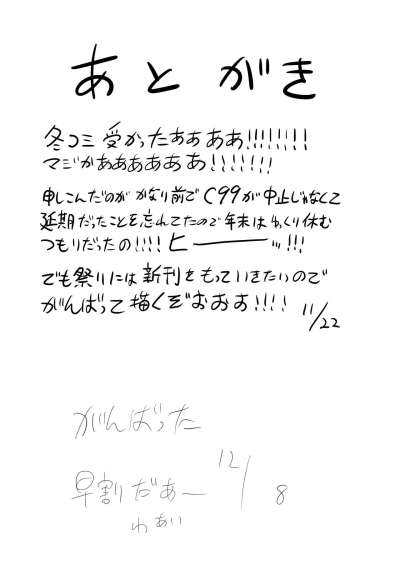 あとがき
冬コミ受かったぁぁああ!!!!!!!!
マジかあああああぁ!!!!!!!
申しこんだのが かなり前で C99が中止じゃなくて
延期だったことを忘れてたので年末はゆっくり休む
つもりだったの!!!! ヒ―――ッ!!!
でも祭りには新刊をもっていきたいので
がんばって描くぞおおお!!!!
11/22
がんばった
早割だぁー 12/8
わぁい